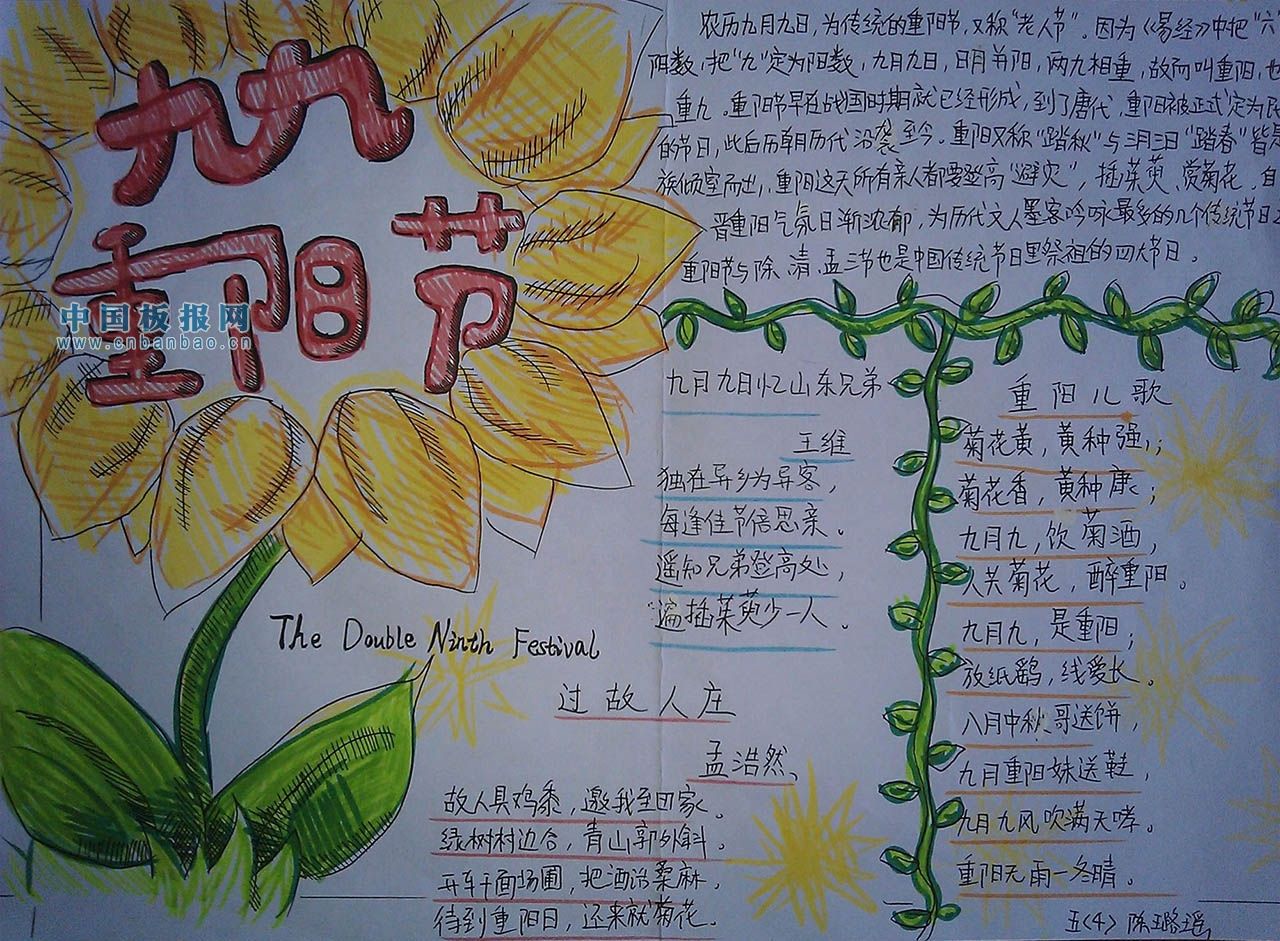 九九
重阳节
中国板报网
www.cnbanbao.cn
农历九月九日，为传统的重阳节，又称“老人节”。因为《易经》中把“六
阴数，把“九”定为阳数，九月九日，日月并阳，两九相重，故而叫重阳，也
重九。重阳节早在战国时期就已经形成，到了唐代，重阳被正式定为民
的节日，此后历朝历代沿袭至今。重阳又称“踏秋”与三月三日“踏春”皆是
族倾室而出，重阳这天所有亲人都要登高“避灾”，插茱萸、赏菊花。自
晋重阳气氛日渐浓郁，为历代文人墨客吟咏最多的几个传统节日之
重阳节与除、清、盂三节也是中国传统节日里祭祖的四大节日。
九月九日忆山东兄弟
王维
独在异乡为异客，
每逢佳节倍思亲。
遥知兄弟登高处，
遍插茱萸少一人。
重阳儿歌
菊花黄，黄种强；
菊花香，黄种康；
九月九，饮菊酒，
人共菊花，醉重阳。
九月九，是重阳；
放纸鹞，线爱长。
八月中秋哥送饼，
九月重阳妹送鞋，
九月九风吹满天哮。
重阳无雨一冬晴。
The Double Ninth Festival
过故人庄
孟浩然、
故人具鸡黍，邀我至田家。
绿树村边合，青山郭外斜。
开轩面场圃，把酒话桑麻，
待到重阳日，还来就菊花。
五〈4〉陈璐瑶